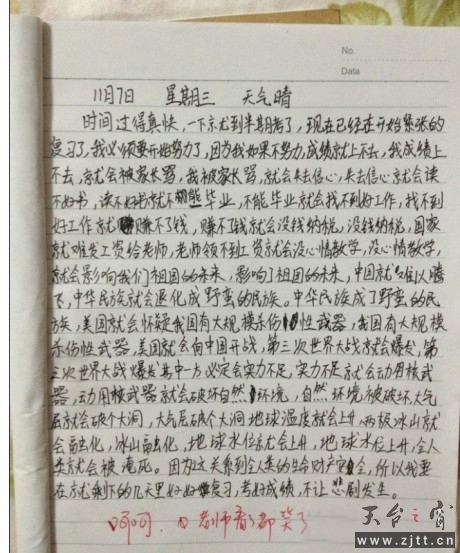 No.
Date
11月7日 星期三 天气晴
时间过得真快，一下就到半期考了，现在已经在开始紧张的
复习了，我必须要开始努力了，因为我如果不努力，成绩就上不去，我成绩上
不去，就会被家长骂，我被家长骂，就会失去信心，失去信心就会读
不好书，读不好书就不能毕业，不能毕业就会找不到好工作，找不到
好工作就赚不了钱，赚不了钱就会没钱纳税，没钱纳税，国家
就难发工资给老师，老师领不到工资就会没心情教学，没心情教学，
就会影响我们祖国的未来，影响了祖国的未来，中国就难以腾
飞，中华民族就会退化成野蛮的民族。中华民族成了野蛮的民
族，美国就会怀疑我国有大规模杀伤性武器，我国有大规模
杀伤性武器，美国就会向中国开战，第三次世界大战就会爆发，第
三次世界大战爆发其中一方必定会实力不足，实力不足就会动用核武
器，动用核武器就会破坏自然环境，自然环境被破坏，大气
层就会破个大洞，大气层破个大洞地球温度就会上升，两极冰山就
会融化，冰山融化，地球水位就会上升，地球水位上升，全人
类就会被淹死。因为这关系到全人类的生命财产安全，所以我要
在就剩下的几天里好好复习，考好成绩，不让悲剧发生。
呵呵. 老师看了都笑了
天台之窗
www.zjtt.cn